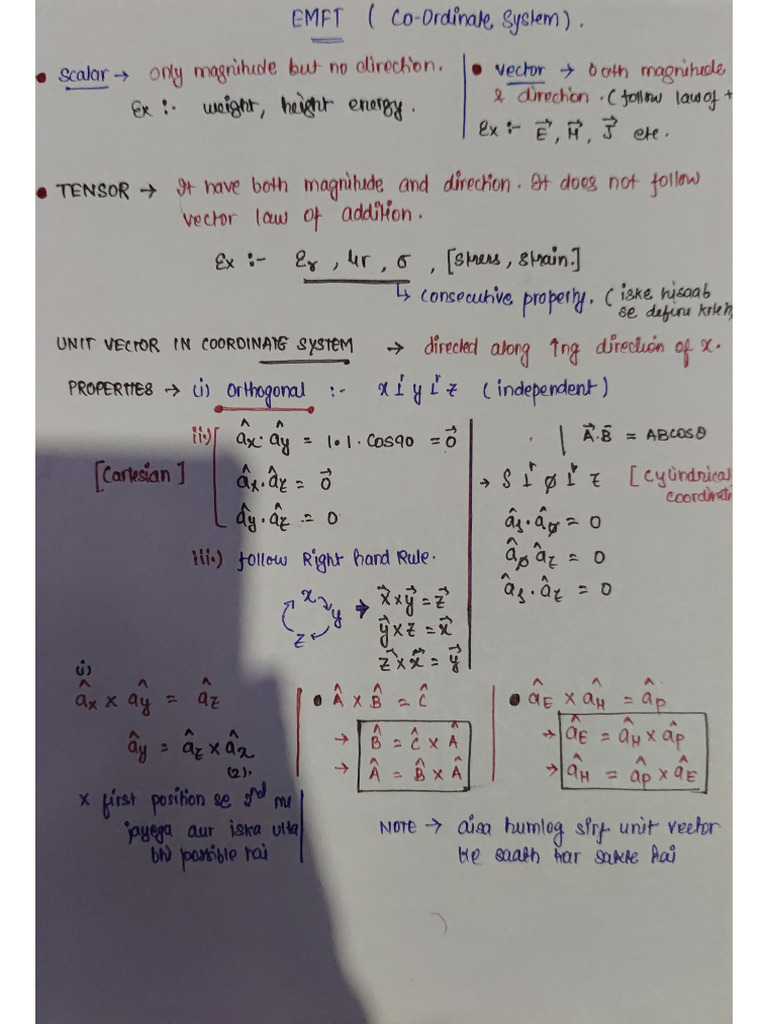 EMFT ( Co-Ordinate System ).
• Scalar → only magnitude but no direction.
Ex :- weight, height energy.
• vector → both magnitude
& direction. (follow law of +
Ex :- E⃗, H⃗, J⃗ etc.
• TENSOR → It have both magnitude and direction. It does not follow
vector law of addition.
Ex :- εr , μr , σ , [stress, strain.]
↳ consecutive property. ( iske hisaab
se define krte h
UNIT VECTOR IN COORDINATE SYSTEM → directed along ↑ng direction of x.
PROPERTIES → (i) Orthogonal :- x ⊥r y ⊥r z ( independent )
ii.) âx · ây = 1·1·Cos90 = 0⃗
[Cartesian] âx · âz = 0⃗
ây · âz = 0
A⃗.B⃗ = ABcosθ
→ S ⊥r ø ⊥r z [Cylindrical
coordinati
âs · âø = 0
âø âz = 0
âs · âz = 0
iii.) follow Right hand Rule.
x y z → x⃗ × y⃗ = z⃗
y⃗ × z = x⃗
z⃗ × x⃗ = y⃗
(i)
âx × ây = âz
ây = âz × âx
(2).
x first position se 2nd me
jayega aur iska ulta
bhi possible hai
• Â × B̂ = Ĉ
→ B̂ = Ĉ × Â
→ Â = B̂ × Â
• âE × âH = âP
→ âE = âH × âP
→ âH = âP × âE
NOTE → aisa humlog sirf unit vector
ke saath kar sakte hai